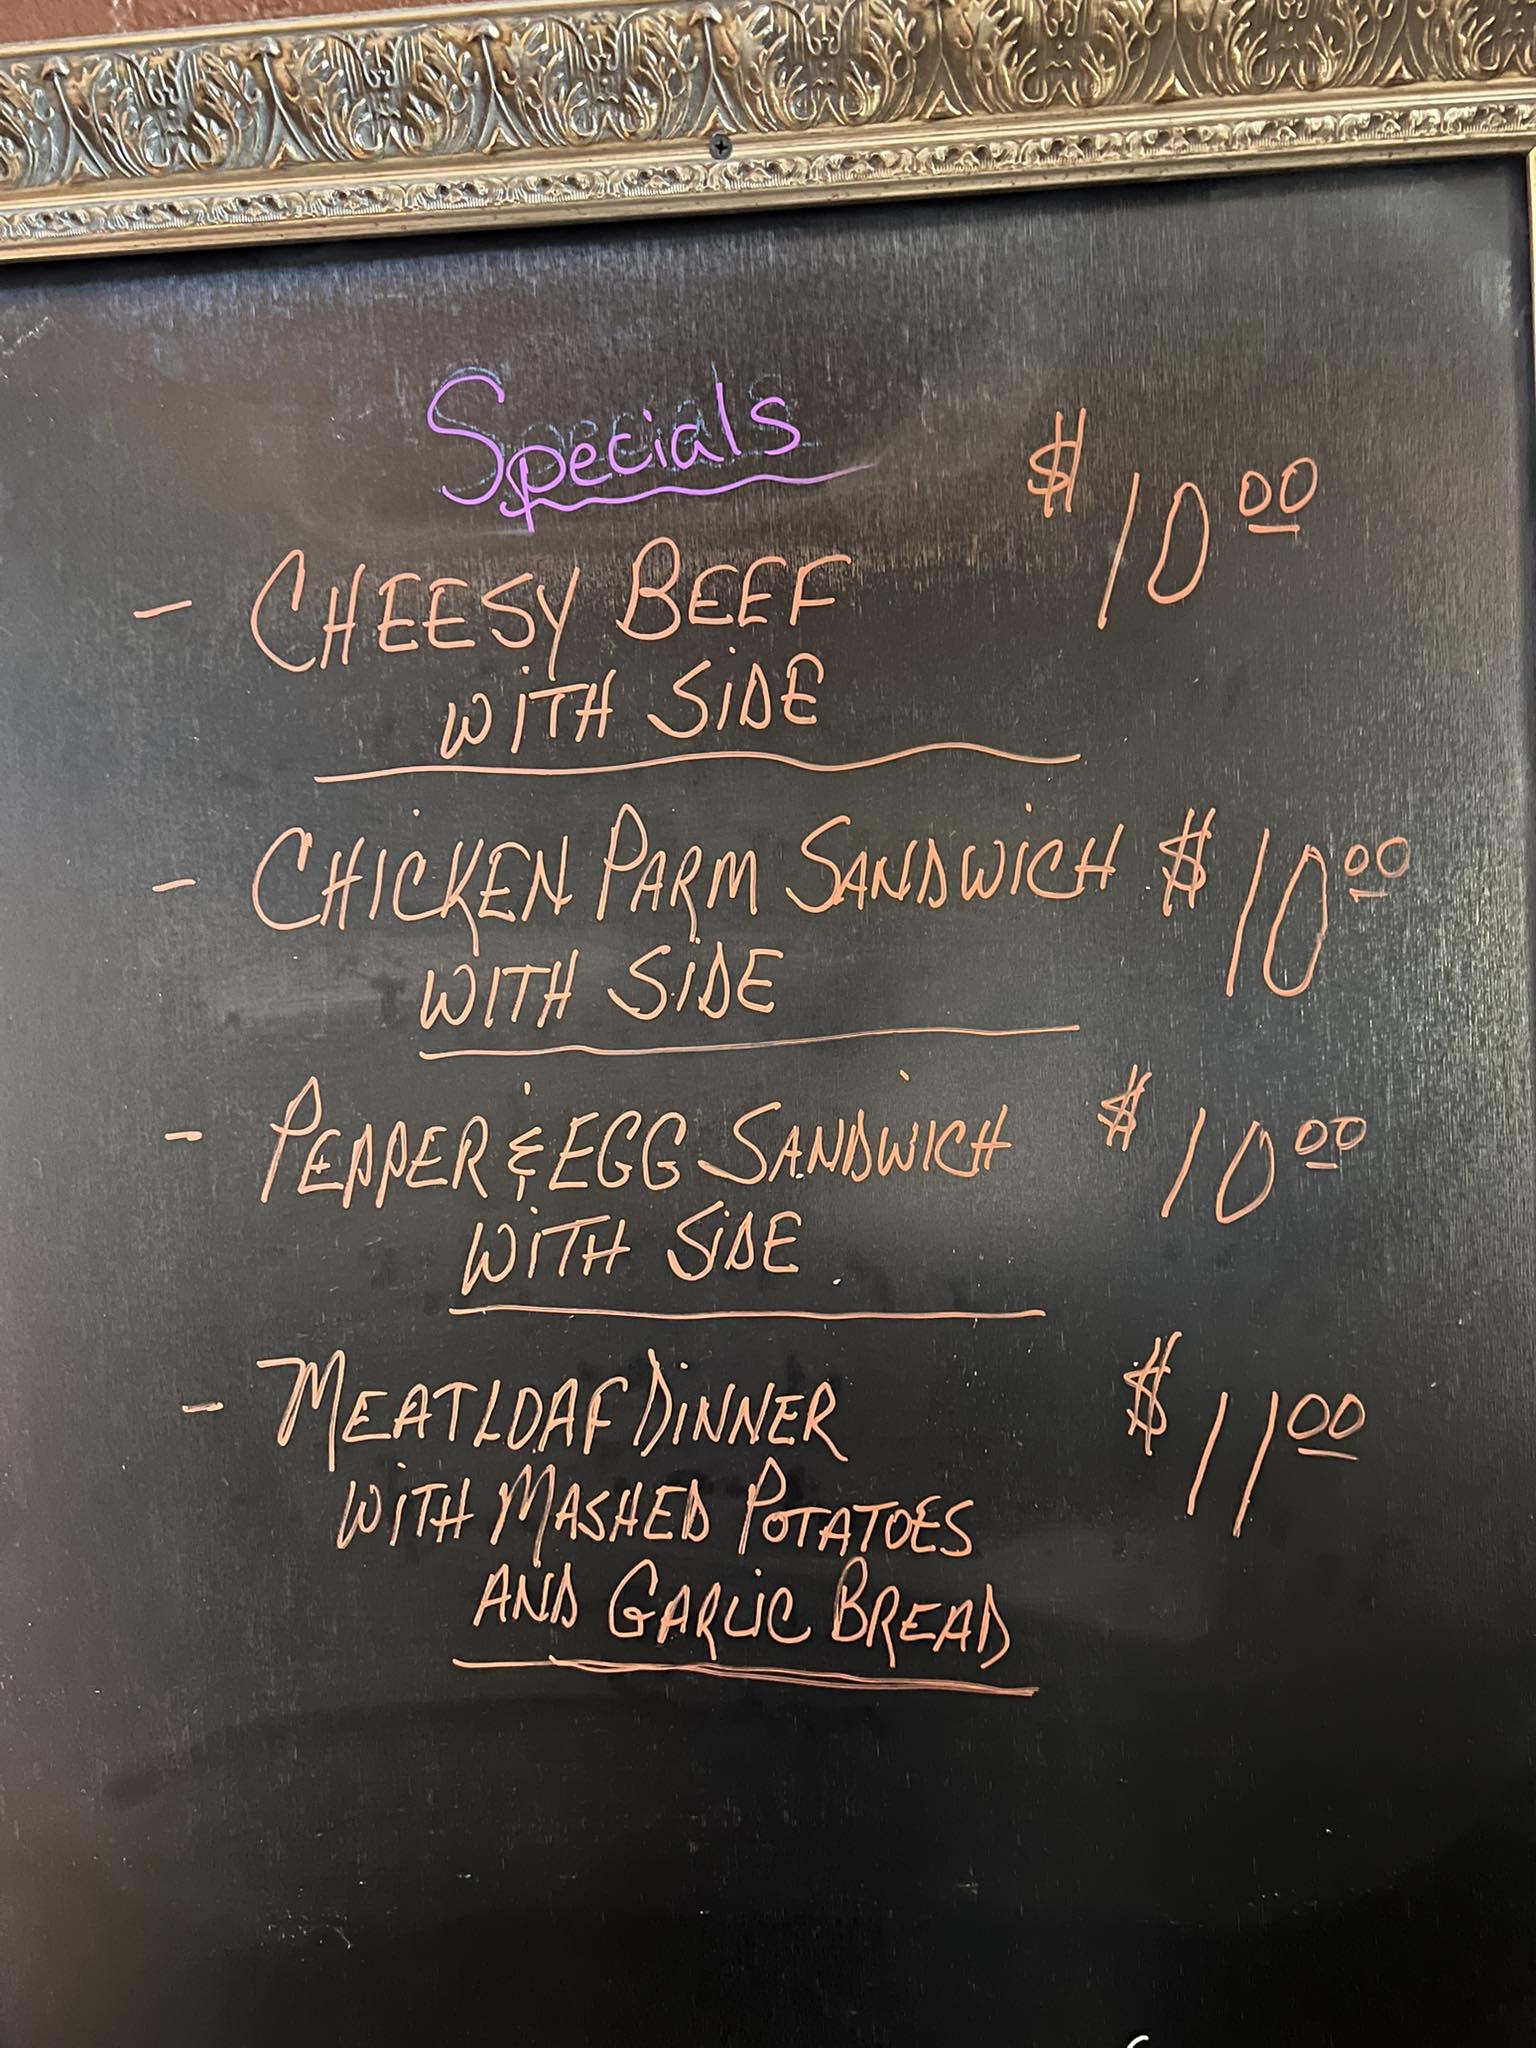 Specials
- CHEESY BEEF $10.00
WITH SIDE
- CHICKEN PARM SANDWICH $10.00
WITH SIDE
- PEPPER & EGG SANDWICH $10.00
WITH SIDE
- MEATLOAF DINNER $11.00
WITH MASHED POTATOES
AND GARLIC BREAD